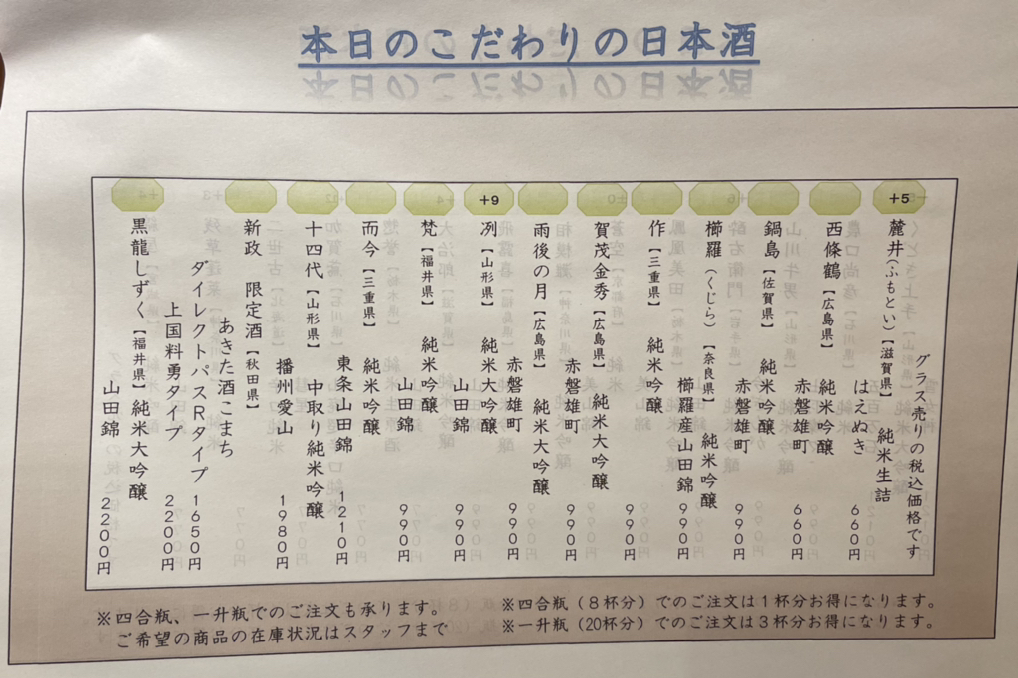 本日のこだわりの日本酒
グラス売りの税込価格です
+5
麓井(ふもとい)【滋賀県】 純米生詰
はえぬき 660円
西條鶴【広島県】 純米吟醸
赤磐雄町 660円
鍋島【佐賀県】 純米吟醸
赤磐雄町 990円
櫛羅(くじら)【奈良県】 純米吟醸
櫛羅産山田錦 990円
作【三重県】 純米吟醸
990円
賀茂金秀【広島県】 純米大吟醸
赤磐雄町 990円
雨後の月【広島県】 純米大吟醸
赤磐雄町 990円
+9
冽【山形県】 純米大吟醸
山田錦 990円
梵【福井県】 純米吟醸
山田錦 990円
而今【三重県】 純米吟醸
東条山田錦 1210円
十四代【山形県】 中取り純米吟醸
播州愛山 1980円
新政 限定酒【秋田県】
あきた酒こまち
ダイレクトパスRタイプ 1650円
上国料勇タイプ 2200円
黒龍しずく【福井県】 純米大吟醸
山田錦 2200円
※四合瓶、一升瓶でのご注文も承ります。
ご希望の商品の在庫状況はスタッフまで
※四合瓶(8杯分)でのご注文は1杯分お得になります。
※一升瓶(20杯分)でのご注文は3杯分お得になります。